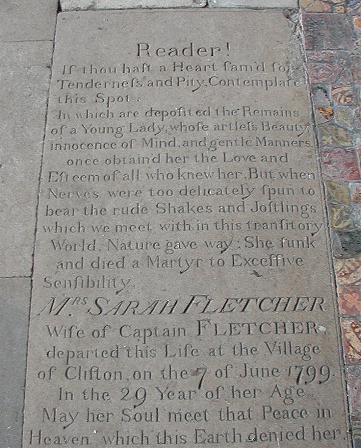 Reader!
If thou haſt a Heart fam'd for
Tenderneſs and Pity, Contemplate
this Spot.
In which are depoſited the Remains
of a Young Lady, whoſe artleſs Beauty,
innocence of Mind, and gentle Manners,
once obtain'd her the Love and
Eſteem of all who knew her. But when
Nerves were too delicately ſpun to
bear the rude Shakes and Joſtlings
which we meet with in this tranſitory
World, Nature gave way; She ſunk
and died a Martyr to Exceſſive
Senſibility.
MRS SARAH FLETCHER
Wife of Captain FLETCHER,
departed this Life at the Village
of Clifton, on the 7 of June 1799.
In the 29 Year of her Age.
May her Soul meet that Peace in
Heaven which this Earth denied her